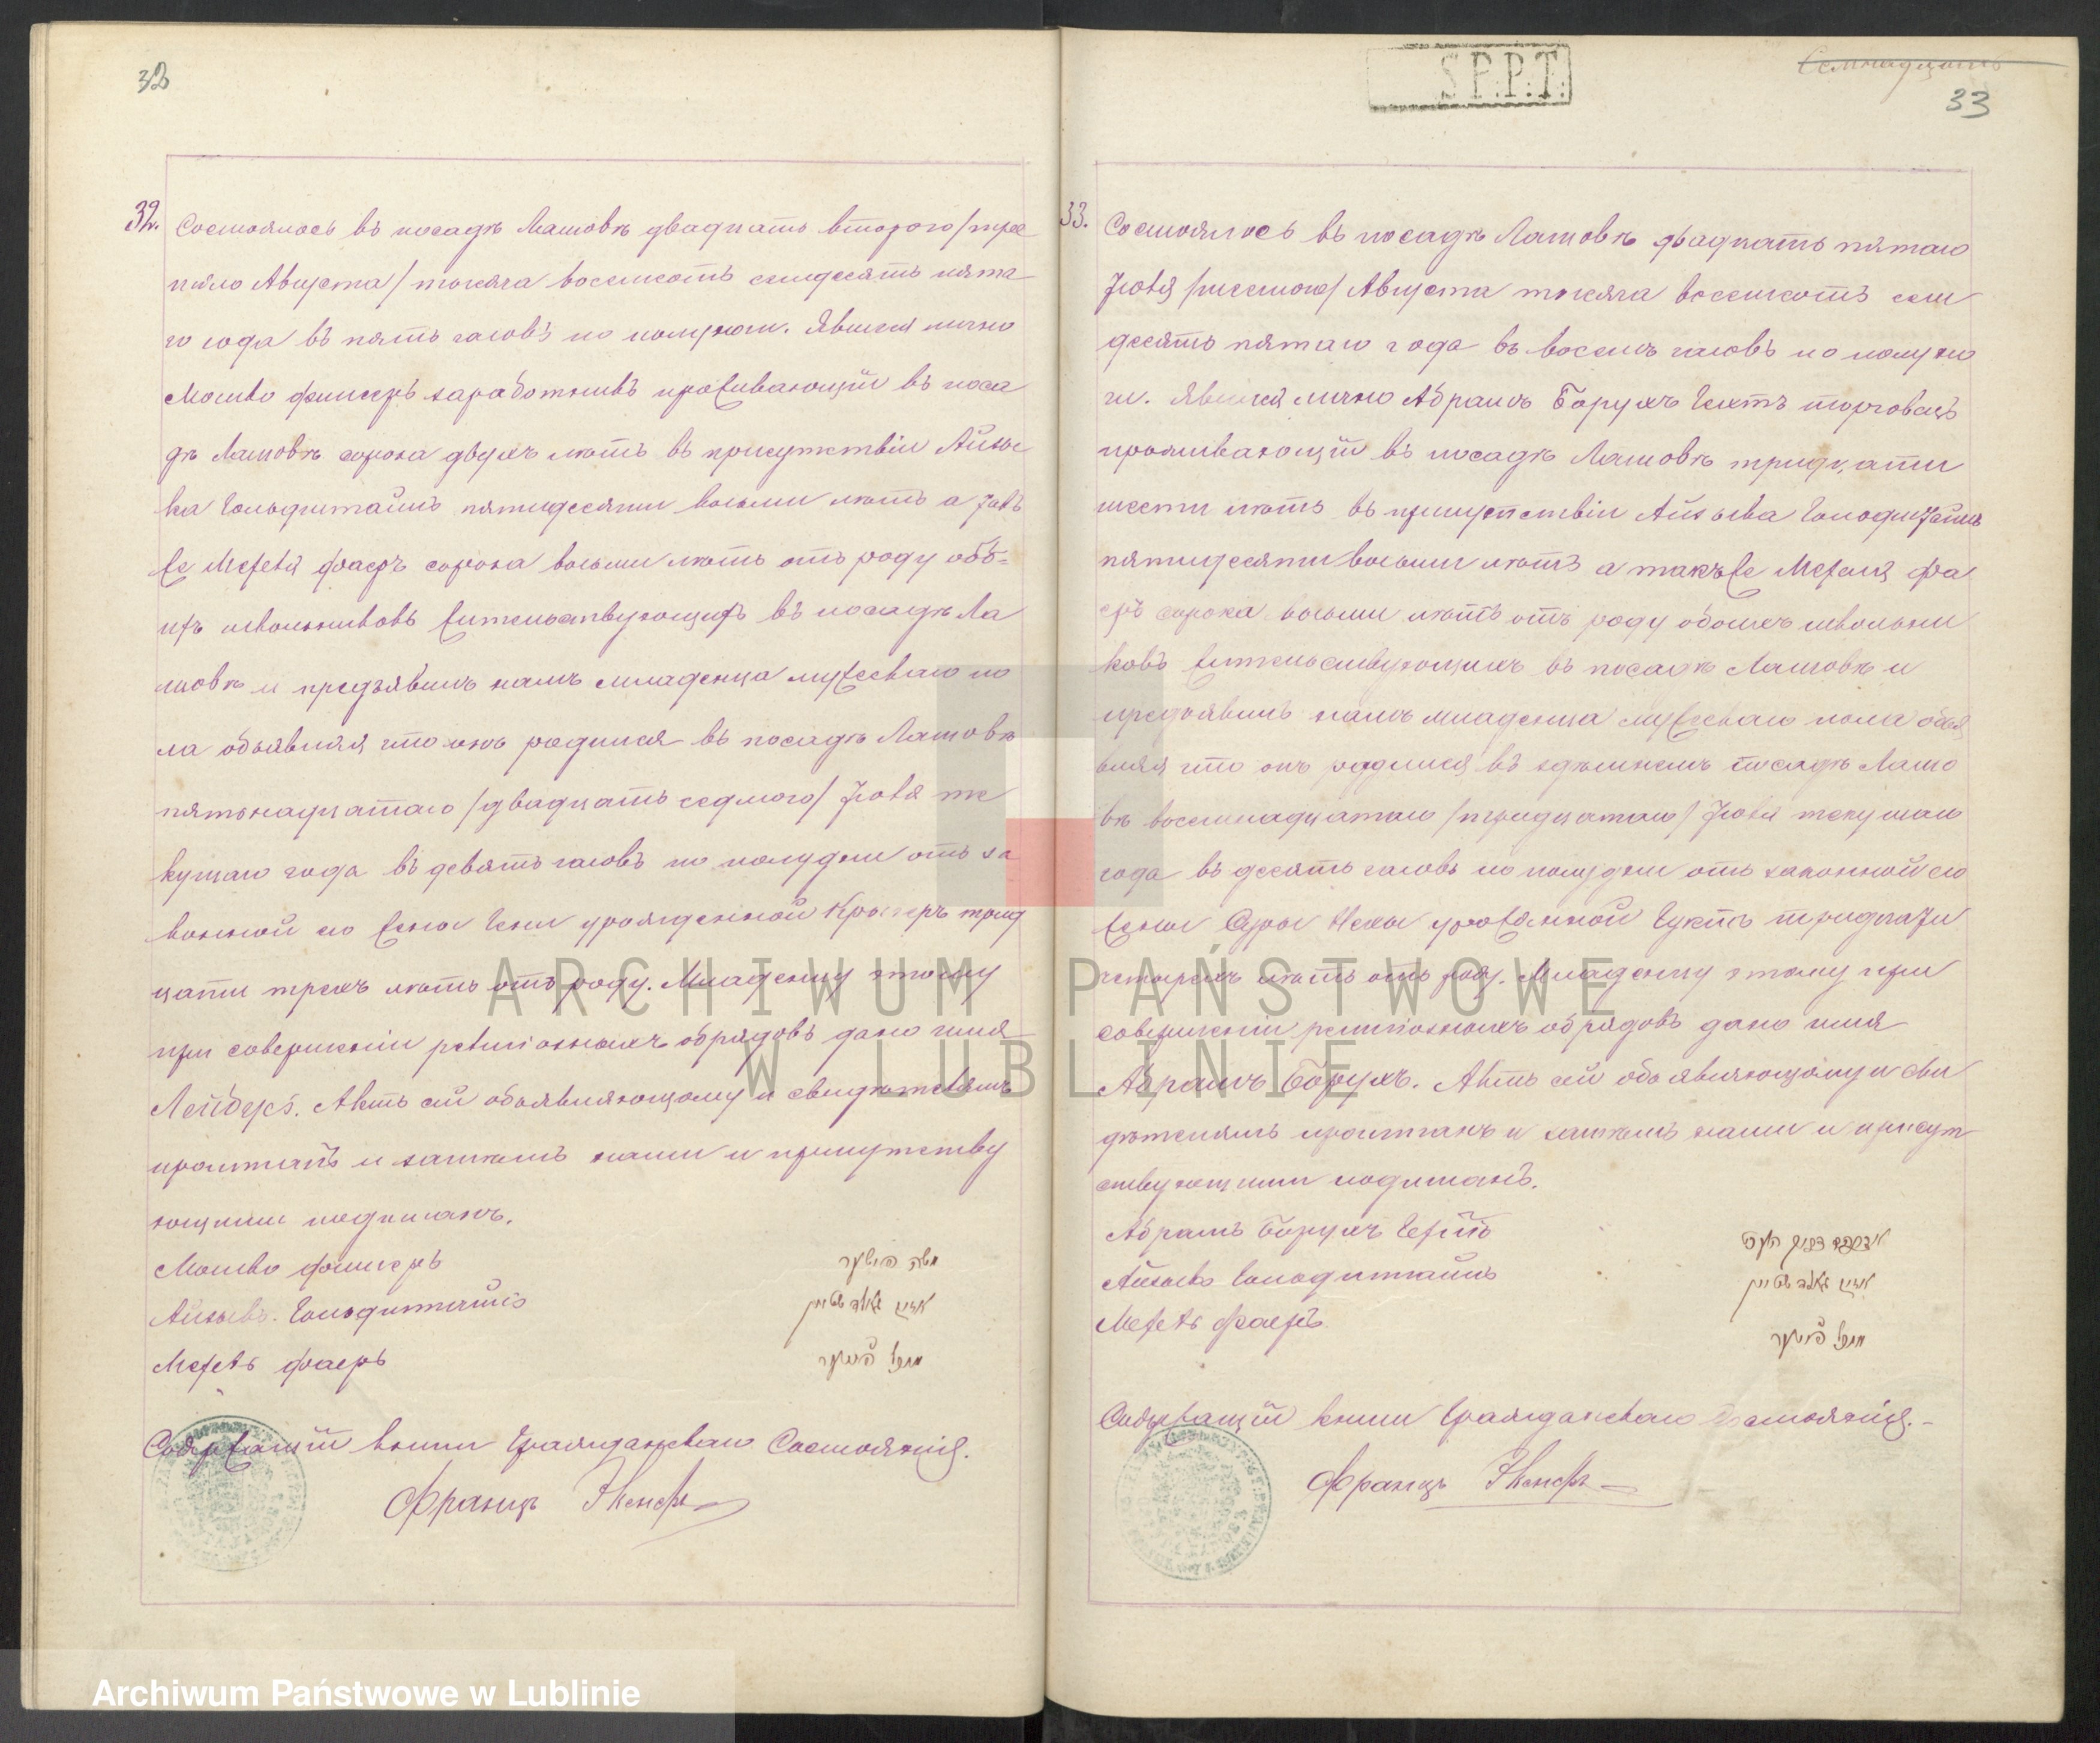 32
32. Состоялось въ посадѣ Лащовѣ двадцать второго /тре
тяго Августа/ тысяча восемсотъ семдесятъ пята
го года въ пять часовъ по полуночи. Явился лично
Мошко Фишеръ заработникъ проживающій въ поса
дѣ Лащовѣ сорока двухъ лѣтъ въ присутствіи Айзы
ка Гольдштайнъ пятидесяти восьми лѣтъ а такъ
же Мехель Фаеръ сорока восьми лѣтъ отъ роду обо-
ихъ школьниковъ жительствующихъ въ посадѣ Ла
щовѣ и предъявилъ намъ младенца мужескаго по
ла объявляя что онъ родился въ посадѣ Лащовѣ
пятьнадцатаго /двадцать седмого/ Іюля те
кущаго года въ девять часовъ по полудни отъ за
конной его жены урожденной трид
цати трехъ лѣтъ отъ роду. Младенцу этому
при совершеніи религіозныхъ обрядовъ дано имя
Лейбусъ. Актъ сей объявляющому и свидѣтелямъ
прочитанъ и затѣмъ нами и присутству
ющими подписанъ.
Мошко Фишеръ משה פישער
Айзыкъ Гольдштайнъ אייזיק גאלדשטיין
Мехель Фаеръ מיכל פייער
Содержащій книги Гражданскаго Состоянія.
Францъ
S.P.P.T.
Семнадцать
33
33. Состоялось въ посадѣ Лащовѣ двадцать пятаго
Іюля /шестого/ Августа тысяча восемсотъ сем
десятъ пятаго года въ восемъ часовъ по полуно
чи. Явился лично Абрамъ Борухъ торговецъ
проживающій въ посадѣ Лащовѣ тридцати
шести лѣтъ въ присутствіи Айзыка Гольдштайнъ
пятидесяти восьми лѣтъ а такъже Мехеля Фа
еръ сорока восьми лѣтъ отъ роду обоихъ школьни
ковъ жительствующихъ въ посадѣ Лащовѣ и
предъявилъ намъ младенца мужескаго пола объя
вляя что онъ родился въ здѣшнемъ посадѣ Лащо
вѣ восемнадцатаго /тридцатаго/ Іюля текущаго
года въ десять часовъ по полудни отъ законной его
жены Суры урожденной тридцати
четырехъ лѣтъ отъ роду. Младенцу этому при
совершеніи религіозныхъ обрядовъ дано имя
Абрамъ Борухъ. Актъ сей объявляющому и сви
дѣтелямъ прочитанъ и затѣмъ нами и присут
ствующими подписанъ.
Абрамъ Борухъ
Айзыкъ Гольдштайнъ אייזיק גאלדשטיין
Мехель Фаеръ מיכל פייער
Содержащій книги Гражданскаго Состоянія.
Францъ
ARCHIWUM PAŃSTWOWE
W LUBLINIE
Archiwum Państwowe w Lublinie